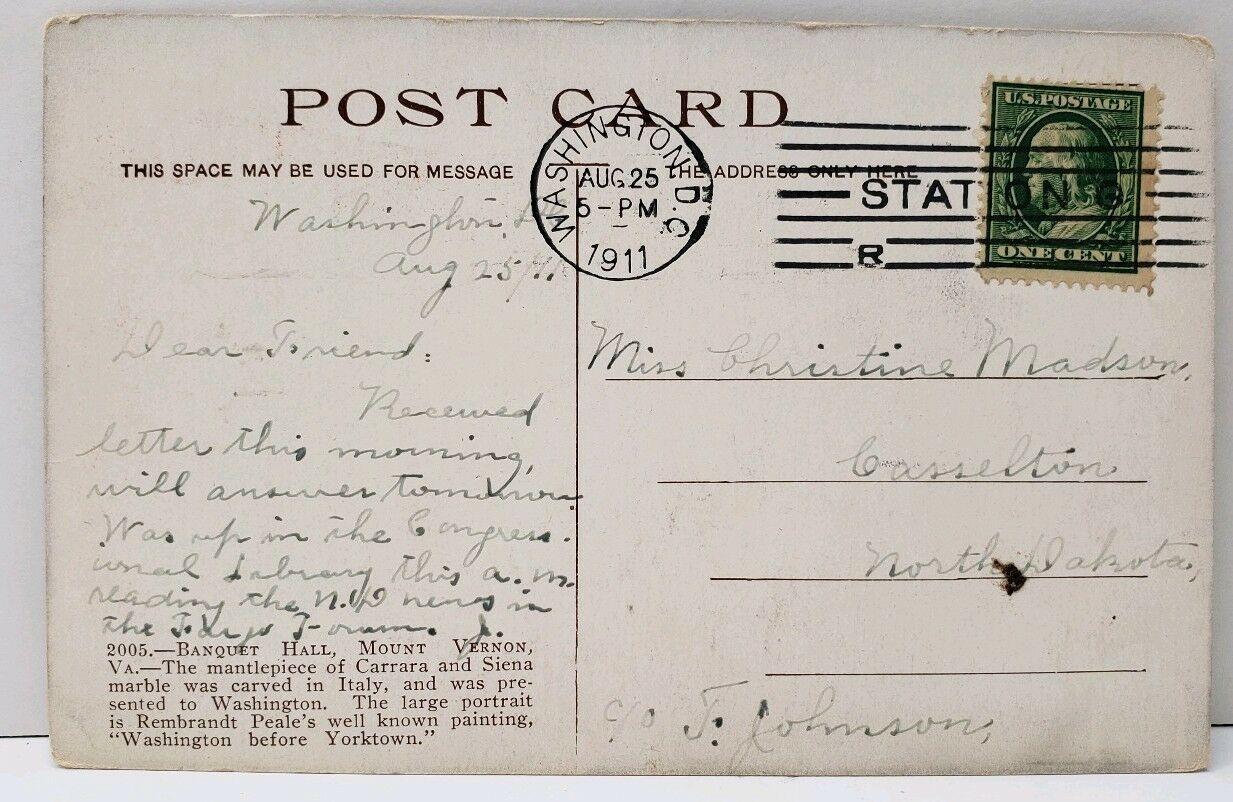 POST CARD
THIS SPACE MAY BE USED FOR MESSAGE
THE ADDRESS ONLY HERE
WASHINGTON, D.C.
AUG 25
5-PM
1911
STATION G
R
U.S. POSTAGE
ONE CENT
Washington,
Aug 25/11
Dear Friend:
Received
letter this morning,
will answer tomorrow
Was up in the Congress-
ional Library this a.m.
reading the N.D news in
the Fargo Forum. J.
Miss Christine Madson,
Casselton
North Dakota,
c/o T. Johnson,
2005.—BANQUET HALL, MOUNT VERNON,
VA.—The mantlepiece of Carrara and Siena
marble was carved in Italy, and was pre-
sented to Washington. The large portrait
is Rembrandt Peale's well known painting,
"Washington before Yorktown."